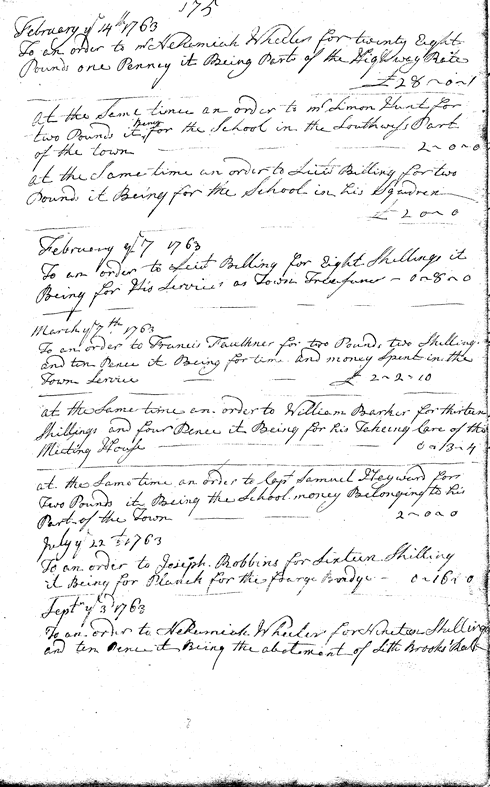 175
February ye 14th 1763
To an order to mr Nehemiah Wheeler for twenty Eight
Pounds one Penney it Being Part of the Highway Rate
£ 28 ~ 0 ~ 1
at the Same time an order to mr Simon Hunt for
two Pounds it Being for the School in the Southwest Part
of the town 2 ~ 0 ~ 0
at the Same time an order to Lieut Billing for two
Pound it Being for the School in his Squdren
£ 2 0 ~ 0
February ye 7 1763
To an order to Lieut Billing for Eight Shillings it
Being for His Service as Town Treesurer ~ 0 ~ 8 ~ 0
March ye 7th 1763
To an order to Francis Faulkner for two Pounds two Shilling
and ten Pence it Being for time and money Spent in the
Town Service £ 2 ~ 2 ~ 10
at the Same time an order to William Barker for thirteen
Shillings and four Pence it Being for his Takeing Care of the
Meeting House 0 ~ 13 ~ 4
at the Same time an order to Capt Samuel Hayward for
Two Pounds it Being the School money Belonging to his
Part of the Town 2 ~ 0 ~ 0
July ye 22th 1763
To an order to Joseph Robbins for Sixteen Shilling
it Being for Planck for the Bridge ~ 0 ~ 16 ~ 0
Sept ye 3 1763
To an order to Nehemiah Wheeler for Nineteen Shillings
and ten Pence it Being the abatement of Brooks